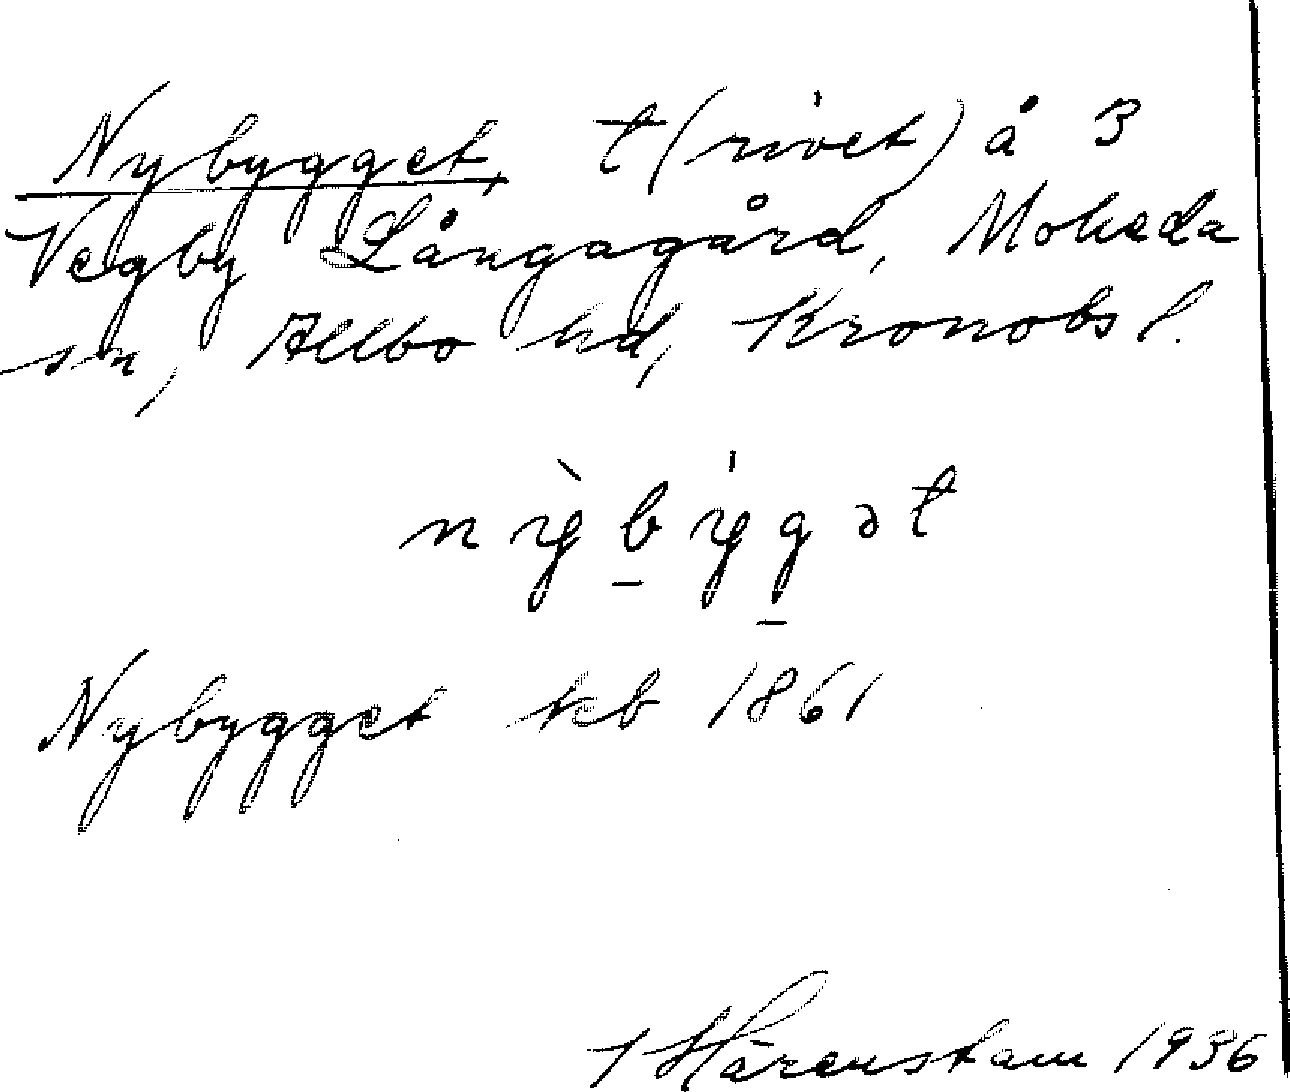 Nybygget, t(rivet) å 3
Vegby Långagård, Moheda
sn, Allbo hd, Kronobs l.
nỳbýgət
Nybygget kb 1861
Härenstam 1936